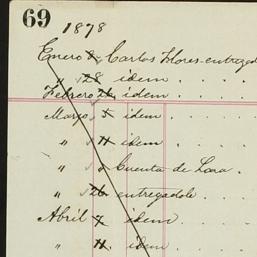 69
1878
Enero 8 Carlos Flores entregad
" 28 idem . . . .
Febrero 26 idem . . . .
Marzo 5 idem . . . .
" 11 idem . . . .
" " Cuenta de Lara .
" 26 entregadole . . .
Abril 7 idem . . . .
" 11 idem . . . .